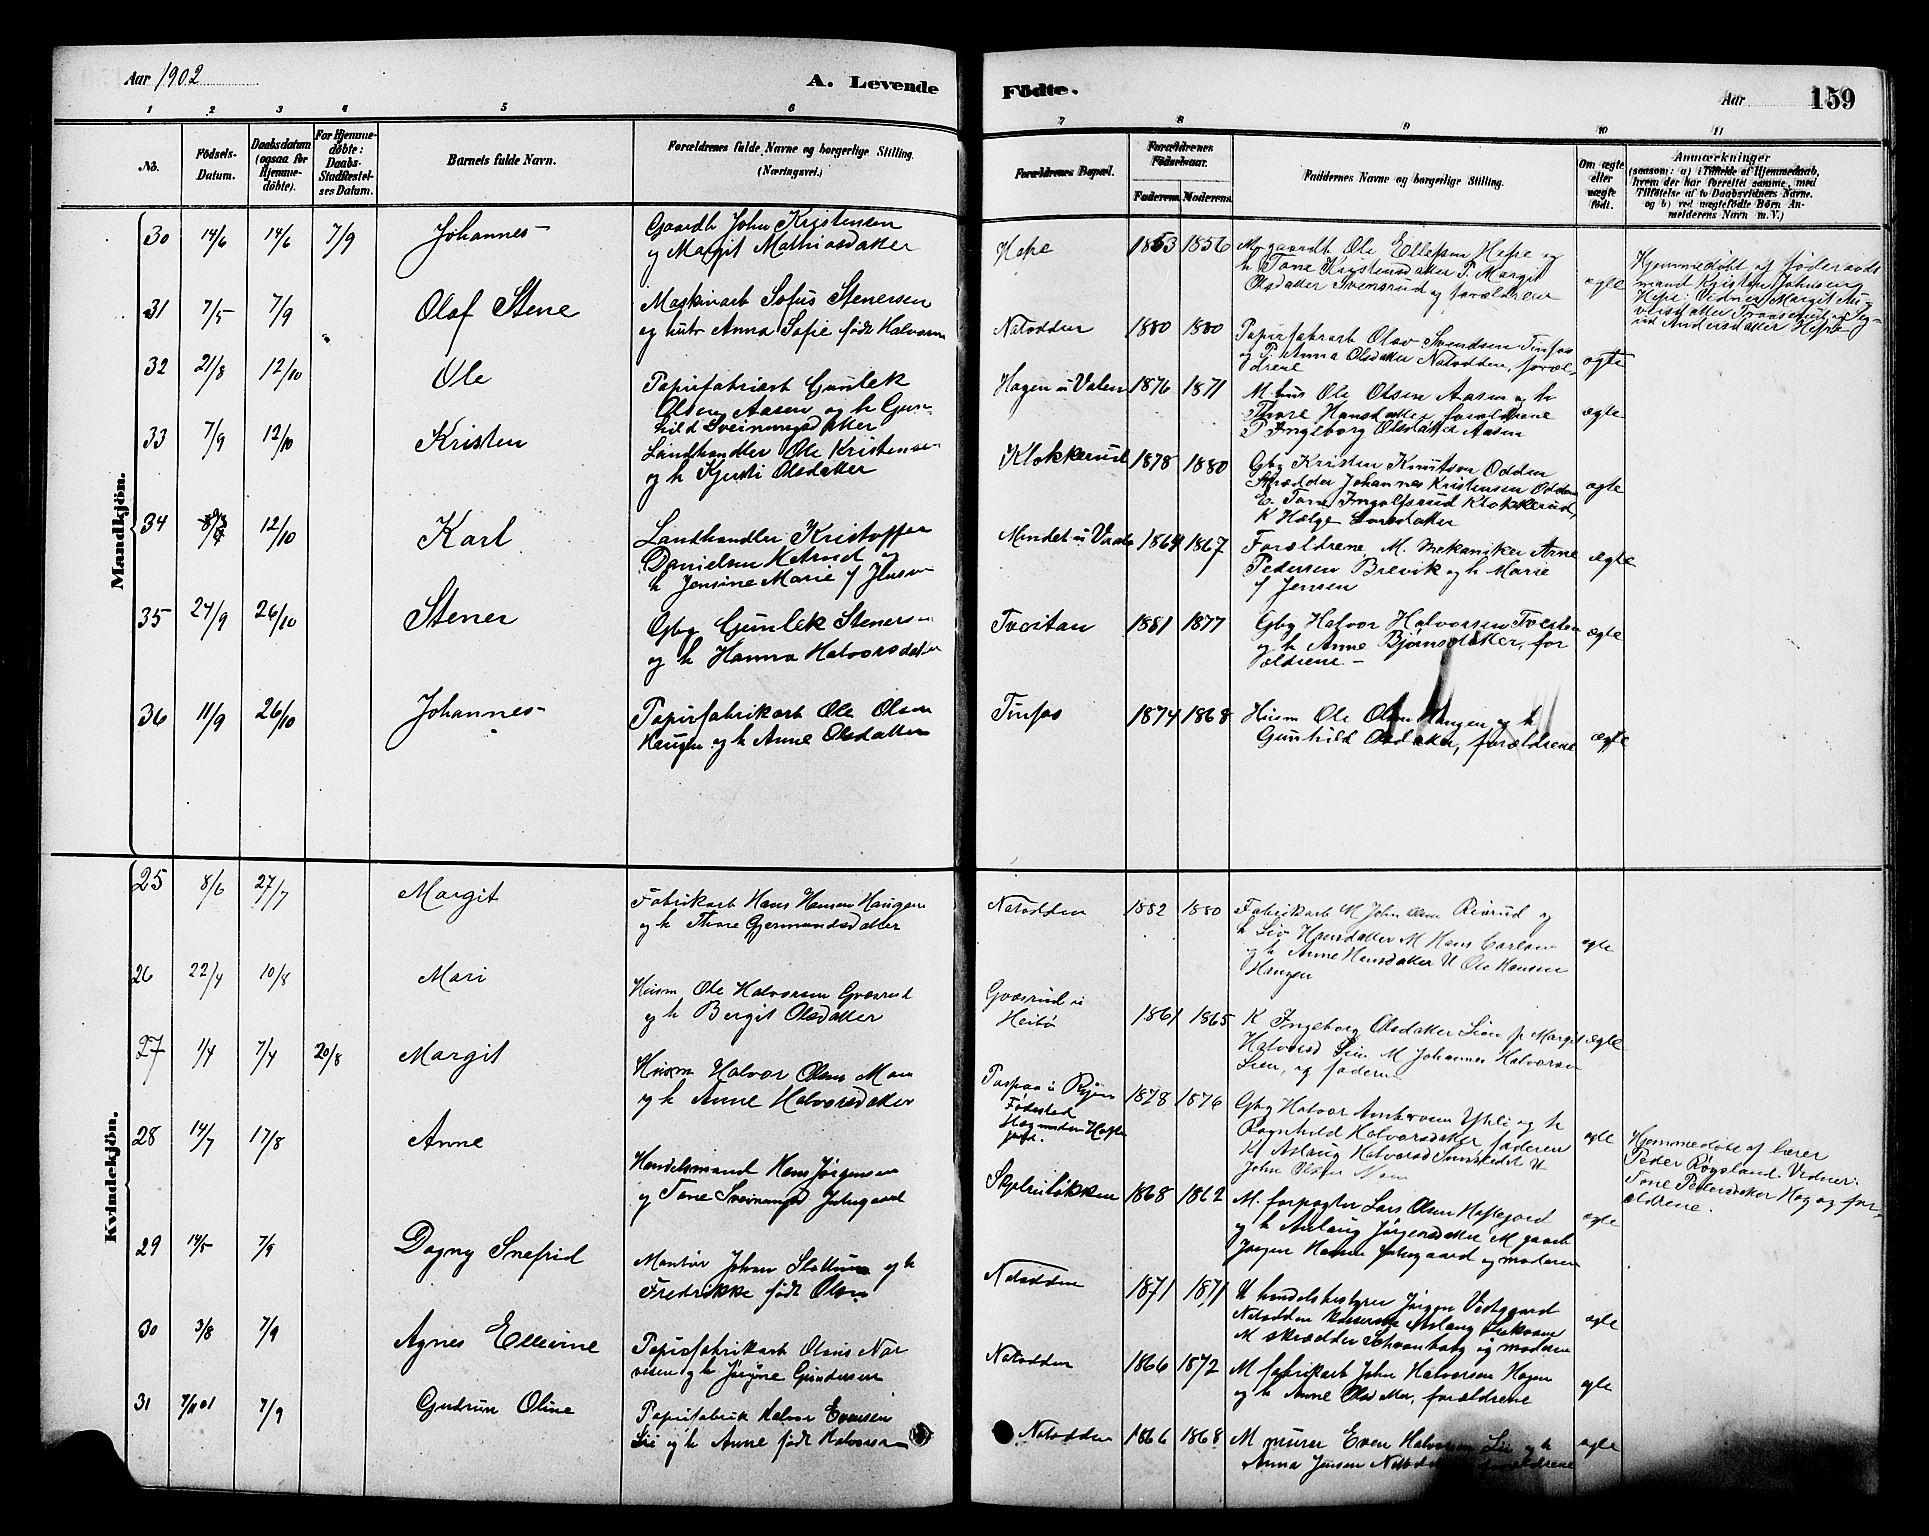 Aar 1902
A. Levende
Födte.
Aar
159
1 2 3 4 5 6 7 8 9 10 11
No.
Födsels-
Datum.
Daabsdatum
(ogsaa for
Hjemme-
døbte).
For Hjemme-
døbte:
Daabs-
Stadfæstel-
ses Datum.
Barnets fulde Navn.
Forældrenes fulde Navne og borgerlige Stilling.
(Næringsvei.)
Forældrenes Bopæl.
Forældrenes
Födselsaar.
Faderens. Moderens.
Faddernes Navne og borgerlige Stilling.
Om ægte
eller
uægte
født.
Anmærkninger
(saasom: a) i Tilfælde af Hjemmedaab,
hvem der har forrettet samme, med
Tilføielse af to Daabsvidners Navne,
og b) ved uægtefødte Börn An-
melderens Navn m. V.)
Mandkjön.
30 14/6 14/6 7/9 Johannes
Gaardb John Kristensen
og Margit Mathiasdatter
Hefre 1853 1856
Ole Ellefsen Hefre og
h Tone Kristensdatter P. Margit
Olsdatter Svensrud og forældrene
ægte
Hjemmedøbt af føderaads
mand Kristen Johnsen
Hefre: Vidner Margit
31 7/5 7/9 Olaf Stene
Maskinarb Sofus Stenersen
og hustr Anna Sofie født Halvorsen
Notodden 1880 1880
Papirfabrarb Olav Svendsen Tinfos
og P. Anna Olsdatter Notodden, foræl-
drene
ægte
32 21/8 12/10 Ole
Papirfabriarb Gunlek
Olsen Aasen og h Gun-
hild Sveinungsdatter
Hagen u Valen 1876 1871
M. hus Ole Olsen Aasen og h
Thore Hansdatter forældrene
P Ingeborg Olsdatter Aasen
ægte
33 7/9 12/10 Kristen
Landhandler Ole Kristensen
og h Kjersti Olsdatter
Klokkerud 1878 1880
Gbg Kristen Knutsen Odden
Skrædder Johannes Kristensen Odden
E. Tone Ingolfsrud Klokkerud,
K Hælge Larsdatter
ægte
34 12/10 Karl
Landhandler Kristoffer
Danielsen
h Jensine Marie f
1864 1867
Forældrene, M. mekaniker Arne
Pedersen Brevik og h Marie
f Jensen
ægte
35 27/9 26/10 Stener
Gbg Gunlek Steners-
og h Hanna Halvorsdatter
Tveitan 1881 1877
Gbg Halvor Halvorsen Tveitan
og h Anne Bjørnsdatter, for
ældrene
ægte
36 11/9 26/10 Johannes
Papirfabrikarb Ole Olsen
Haugen og h Anne Olsdatter
Tinfos 1874 1868
Husm Ole Olsen Haugen og h
Gunhild Olsdatter, forældrene
ægte
Kvindekjön.
25 8/6 27/7 Margit
Fabrikarb Hans Hansen Haugen
og h Thore Gjermundsdatter
Notodden 1882 1880
Fabrikarb M John Olsen Riverud og
h Liv Hansdatter M Hans Carlsen
og h Anne Hansdatter U Ole Hansen
Haugen
ægte
26 22/4 10/8 Mari
Husm Ole Halvorsen Gvaasrud
og h Bergit Olsdatter
Gvaasrud u
Heibø
1861 1865
K Ingeborg Olsdatter Lien P Margit
Halvorsd Lien M Johannes Halvorsen
Lien, og faderen
ægte
27 1/4 7/4 20/8 Margit
Husm Halvor Olsen Moen
og h Anne Halvorsdatter
Fødested
1878 1876
Gbg Halvor
Ragnhild Halvorsdatter, faderen
K Aslaug Halvorsd
John Olsen
ægte
Hjemmedøbt af lærer
Peder Røysland. Vidner:
Tone Pedersdatter Hag og for-
ældrene.
28 14/7 17/8 Anne
Handelsmand Hans Jørgensen
og Tone Sveinungsd
1868 1862
M. forpagter Lars Olsen Haftegard
og h Aslaug Jørgensdatter M gaardb
Jørgen Hansen og moderen
ægte
29 14/5 7/9 Dagny Snefrid
Montør Johan og h
Fredrikke født Olsen
Notodden 1871 1871
U handelsbestyrer Jørgen Vestgaard
Notodden
M skrædder og moderen
ægte
30 3/8 7/9 Agnes Ellevine
Papirfabrikarb Olaus Nar
vesen og h Jørgine Gundersen
Notodden 1866 1872
M fabrikarb John Halvorsen Hagen
og h Anne Olsdatter, forældrene
ægte
31 7/9 Gudrun Oline
Papirfabrik Halvor Evensen
Lie og h Anne født Halvorsen
Notodden 1866 1868
M murer Even Halvorsen Lie og h
Anna Jensen forældrene
ægte